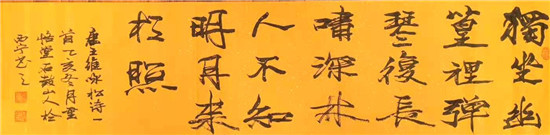 獨坐幽
篁裡彈
琴復長
嘯深林
人不知
明月来
相照
唐王維詩一
首乙亥冬月
悟堂石鼓山人於
西宁